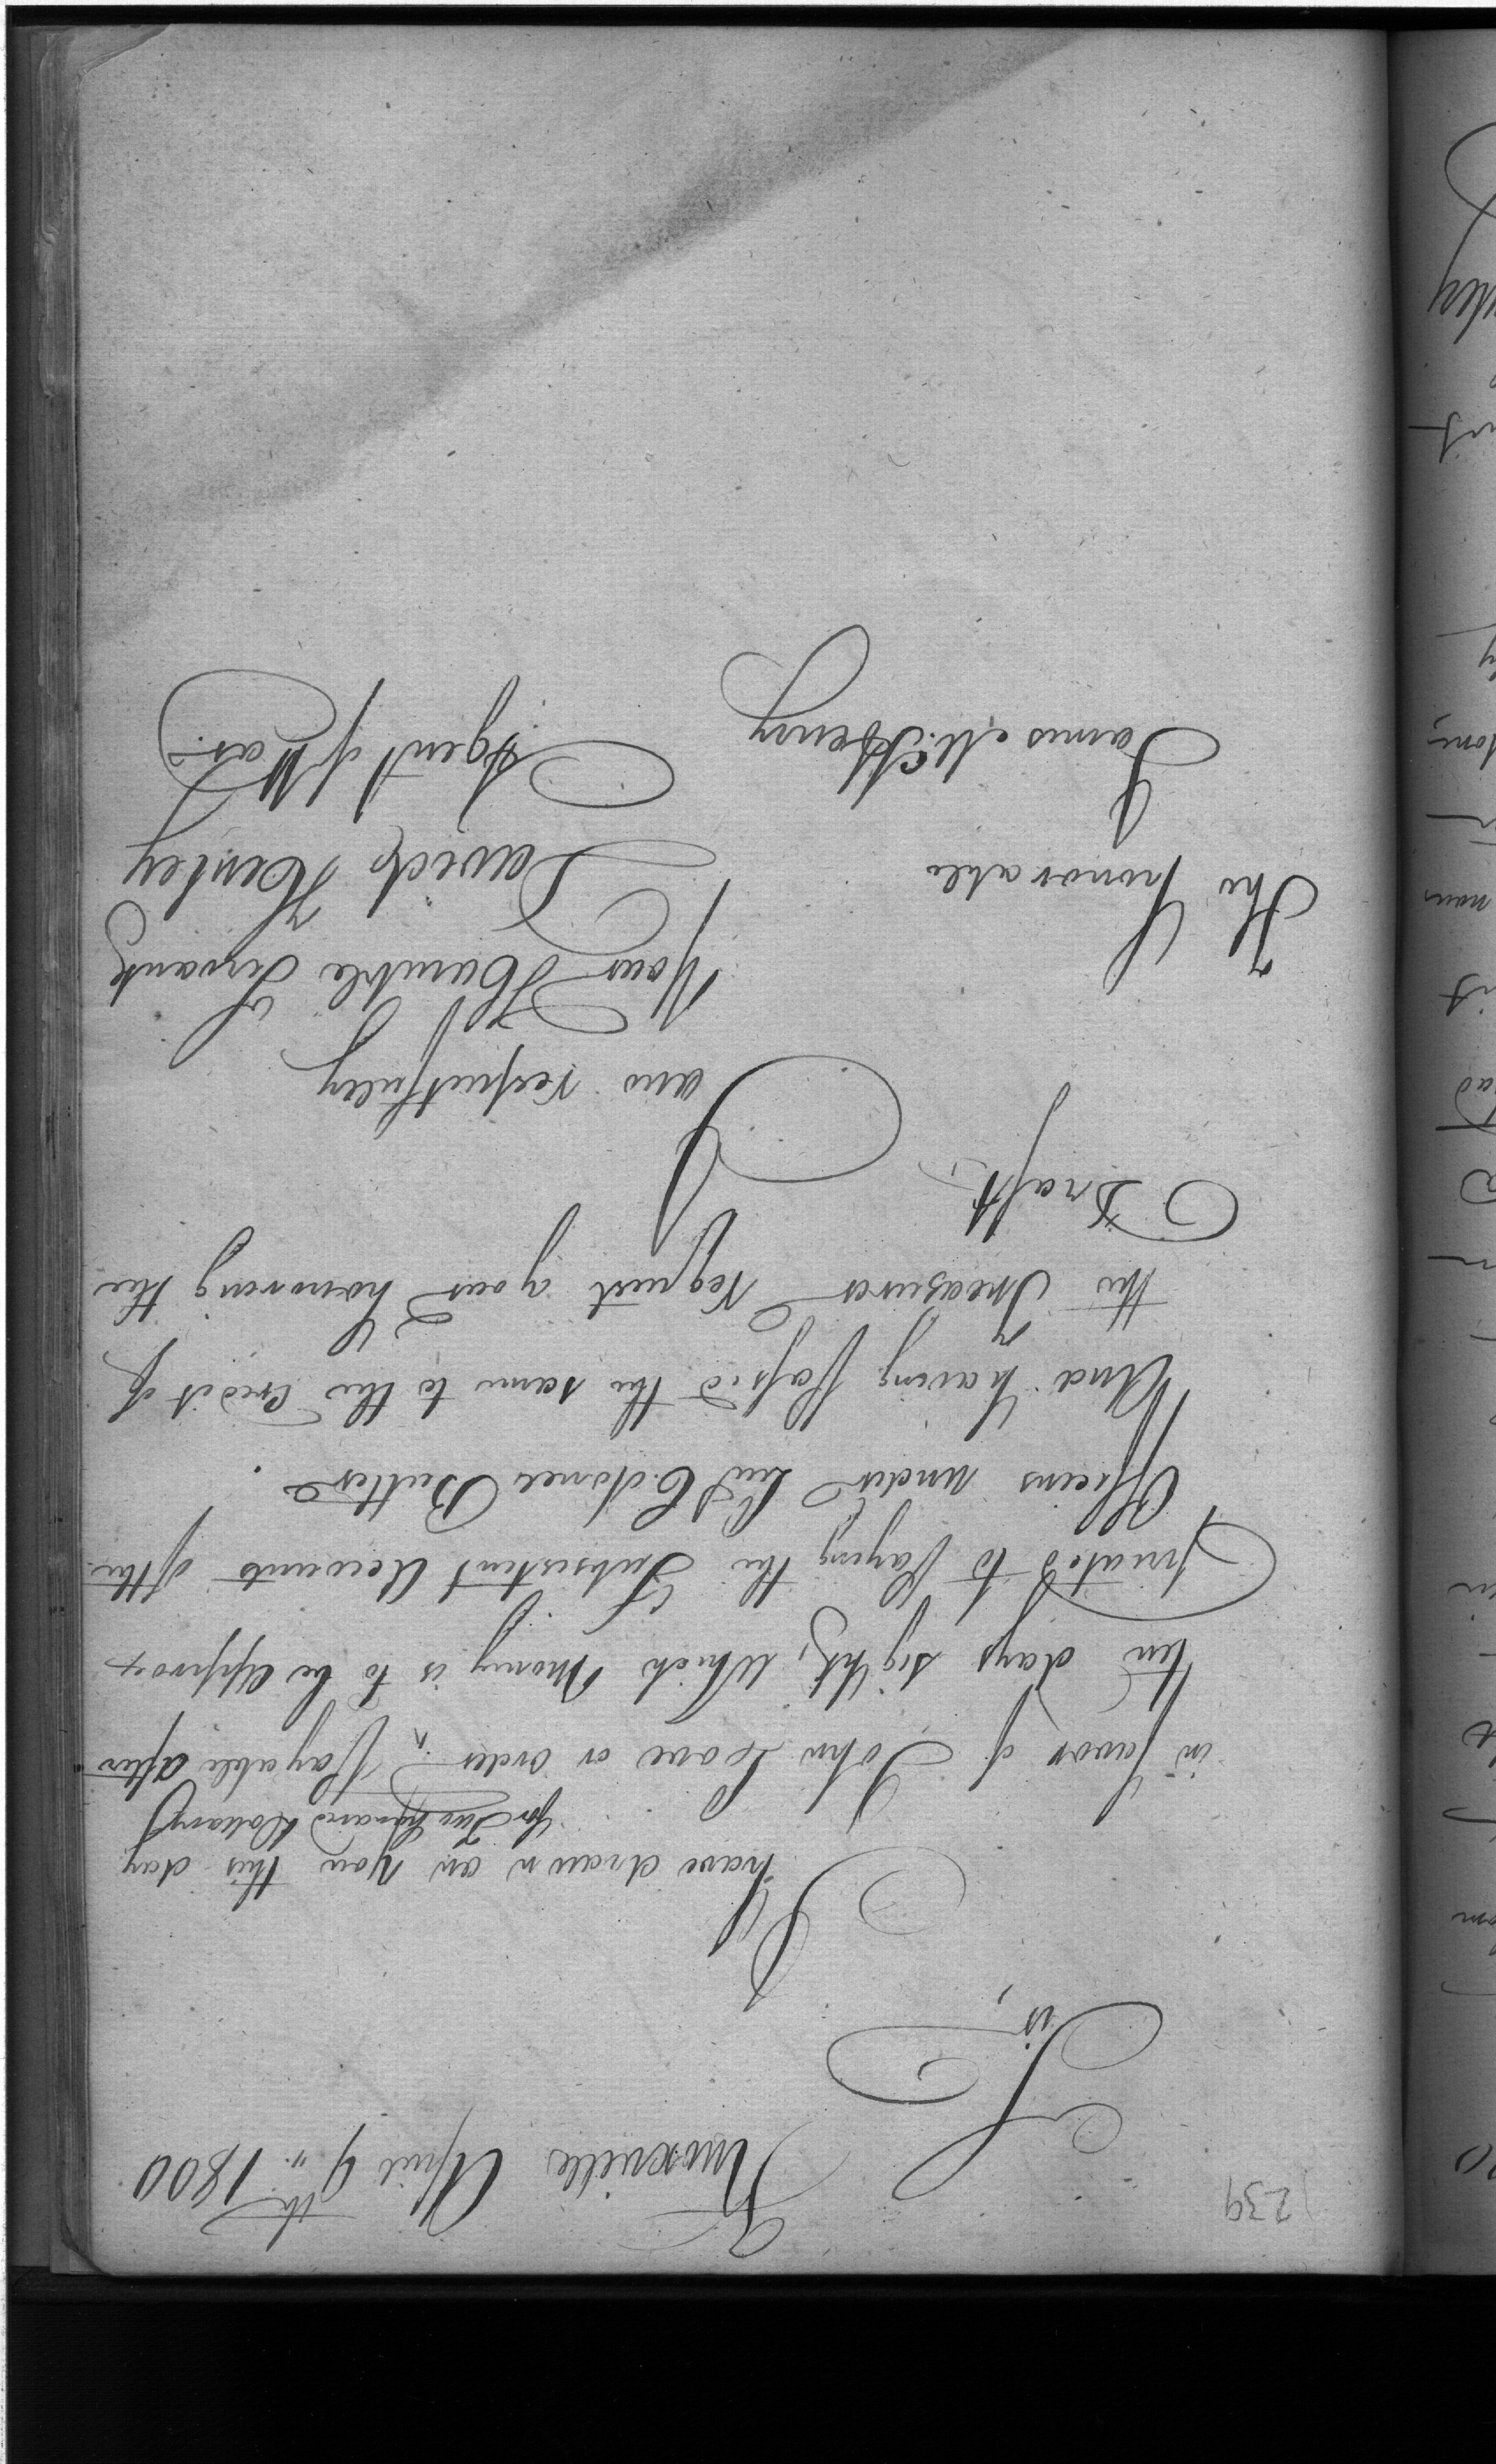 239
Knoxville April 9th. 1800
Sir,
I have drawn on you this day
for Two thousand Dollars
in favor of John Love or order ^ Payable after
ten days sight, which money is to be appro=
priated to paying the Subsistent Accounts of the
Officers under Lieut Colonel Butler
And having Passed the same to the Credit of
the Treasurer request your honoring the
Draft,
I am respectfully
Your Humble Servant
David Henley
Agent of War.
The honorable
James McHenry